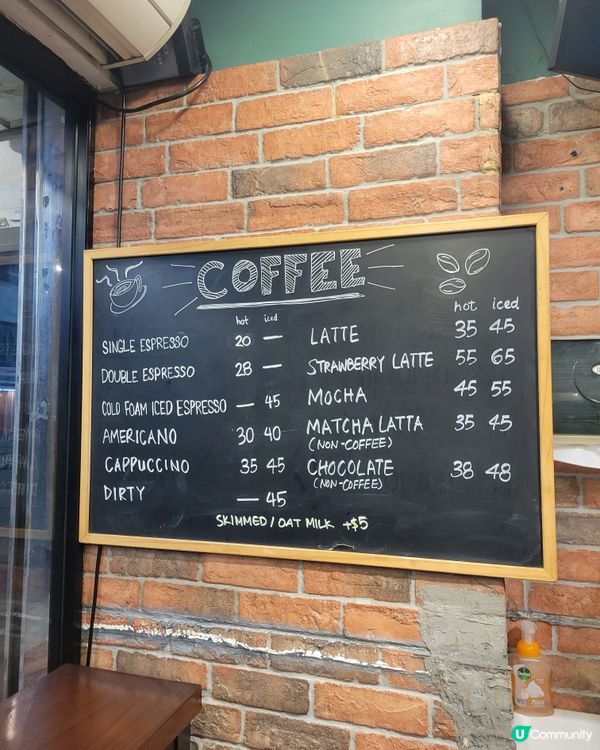 COFFEE
hot iced
SINGLE ESPRESSO 20 —
DOUBLE ESPRESSO 28 —
COLD FOAM ICED ESPRESSO — 45
AMERICANO 30 40
CAPPUCCINO 35 45
DIRTY — 45
hot iced
LATTE 35 45
STRAWBERRY LATTE 55 65
MOCHA 45 55
MATCHA LATTA 35 45
(NON-COFFEE)
CHOCOLATE 38 48
(NON-COFFEE)
SKIMMED / OAT MILK +$5
Dettol
U Community